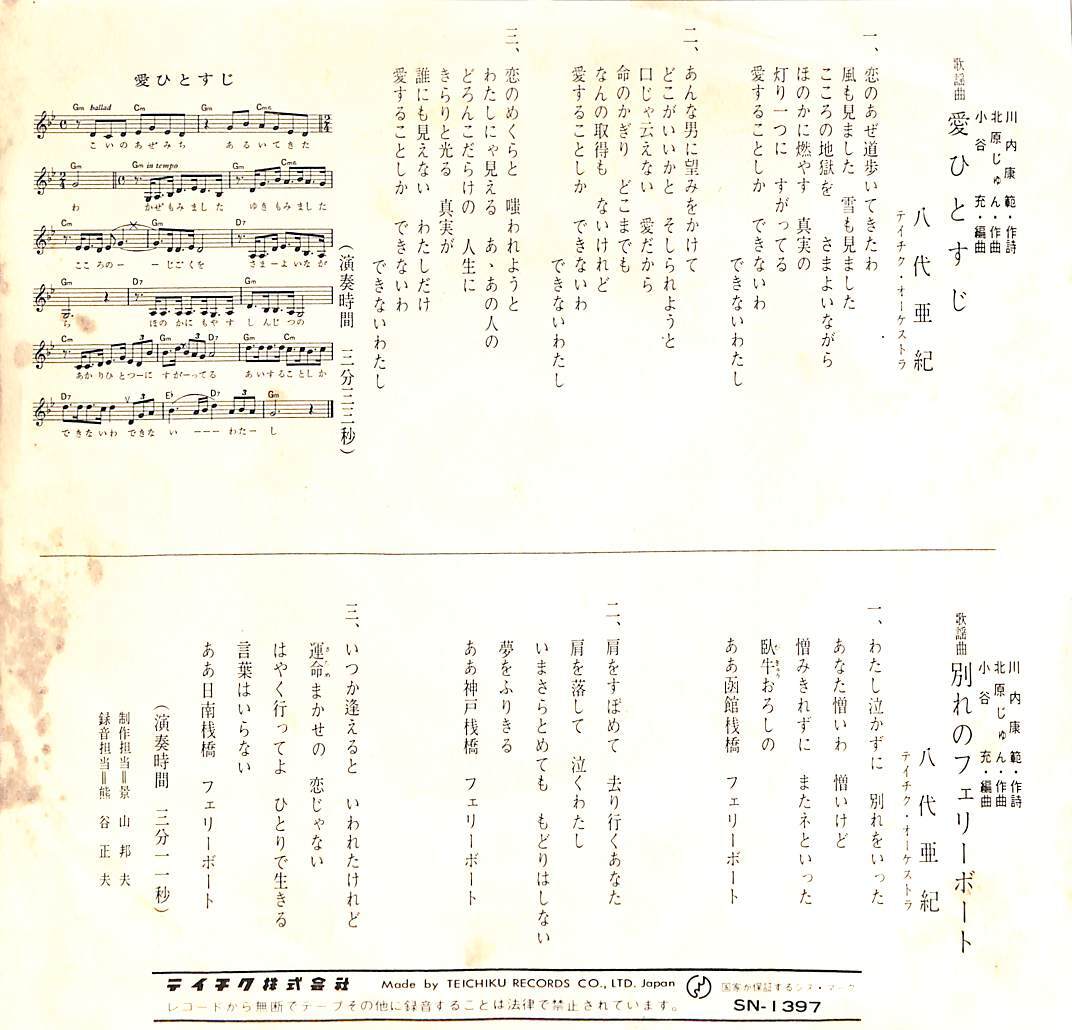 歌謡曲
愛ひとすじ
川内康範・作詩
北原じゅん・作曲
小谷 充・編曲
八代亜紀
テイチク・オーケストラ
一、恋のあぜ道歩いてきたわ
風も見ました 雪も見ました
こころの地獄を さまよいながら
ほのかに燃やす 真実の
灯り一つに すがってる
愛することしか できないわ
できないわたし
二、あんな男に望みをかけて
どこがいいかと そしられようと
口じゃ云えない 愛だから
命のかぎり どこまでも
なんの取得も ないけれど
愛することしか できないわ
できないわたし
三、恋のめくらと 嗤われようと
わたしにゃ見える あゝあの人の
どろんこだらけの 人生に
きらりと光る 真実が
誰にも見えない わたしだけ
愛することしか できないわ
できないわたし
(演奏時間 三分三三秒)
愛ひとすじ
Gm ballad Cm Gm Cm6
こいのあぜみち あるいてきた
Gm Gm in tempo Gm Cm6
わ かぜもみました ゆきもみました
Cm Gm D7
こころの——じごくを さまーよいなが
Gm D7 Gm
ら ほのかにもやす しんじつの
Cm Gm D7 Gm Cm
あかりひとつーに すがーってる あいすることしか
D7 E♭ D7 Gm
できないわ できな い——— わたーし
歌謡曲
別れのフェリーボート
川内康範・作詩
北原じゅん・作曲
小谷 充・編曲
八代亜紀
テイチク・オーケストラ
一、わたし泣かずに 別れをいった
あなた憎いわ 憎いけど
憎みきれずに またネといった
臥牛おろしの
ああ函館桟橋 フェリーボート
二、肩をすぼめて 去り行くあなた
肩を落して 泣くわたし
いまさらとめても もどりはしない
夢をふりきる
ああ神戸桟橋 フェリーボート
三、いつか逢えると いわれたけれど
運命まかせの 恋じゃない
はやく行ってよ ひとりで生きる
言葉はいらない
ああ日南桟橋 フェリーボート
(演奏時間 三分一一秒)
制作担当=景山邦夫
録音担当=熊谷正夫
テイチク株式会社 Made by TEICHIKU RECORDS CO., LTD. Japan 国家が保証するジス・マーク
レコードから無断でテープその他に録音することは法律で禁止されています。 SN-1397